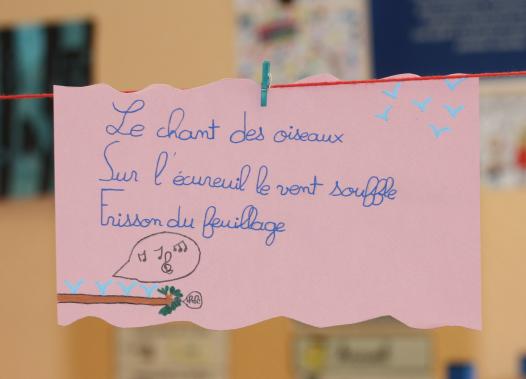 Le chant des oiseaux
Sur l'écureuil le vent souffle
Frisson du feuillage